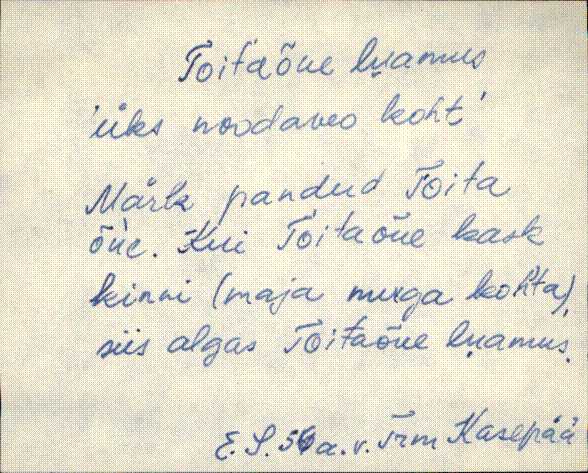 Toitaõue luamus
'üks noodaveo koht'
Märk pandud Toita
õue. Kui Toitaõue kask
kinni (maja nurga kohta),
siis algas Toitaõue luamus.
E. S. 56 a. v. Trm Kasepää